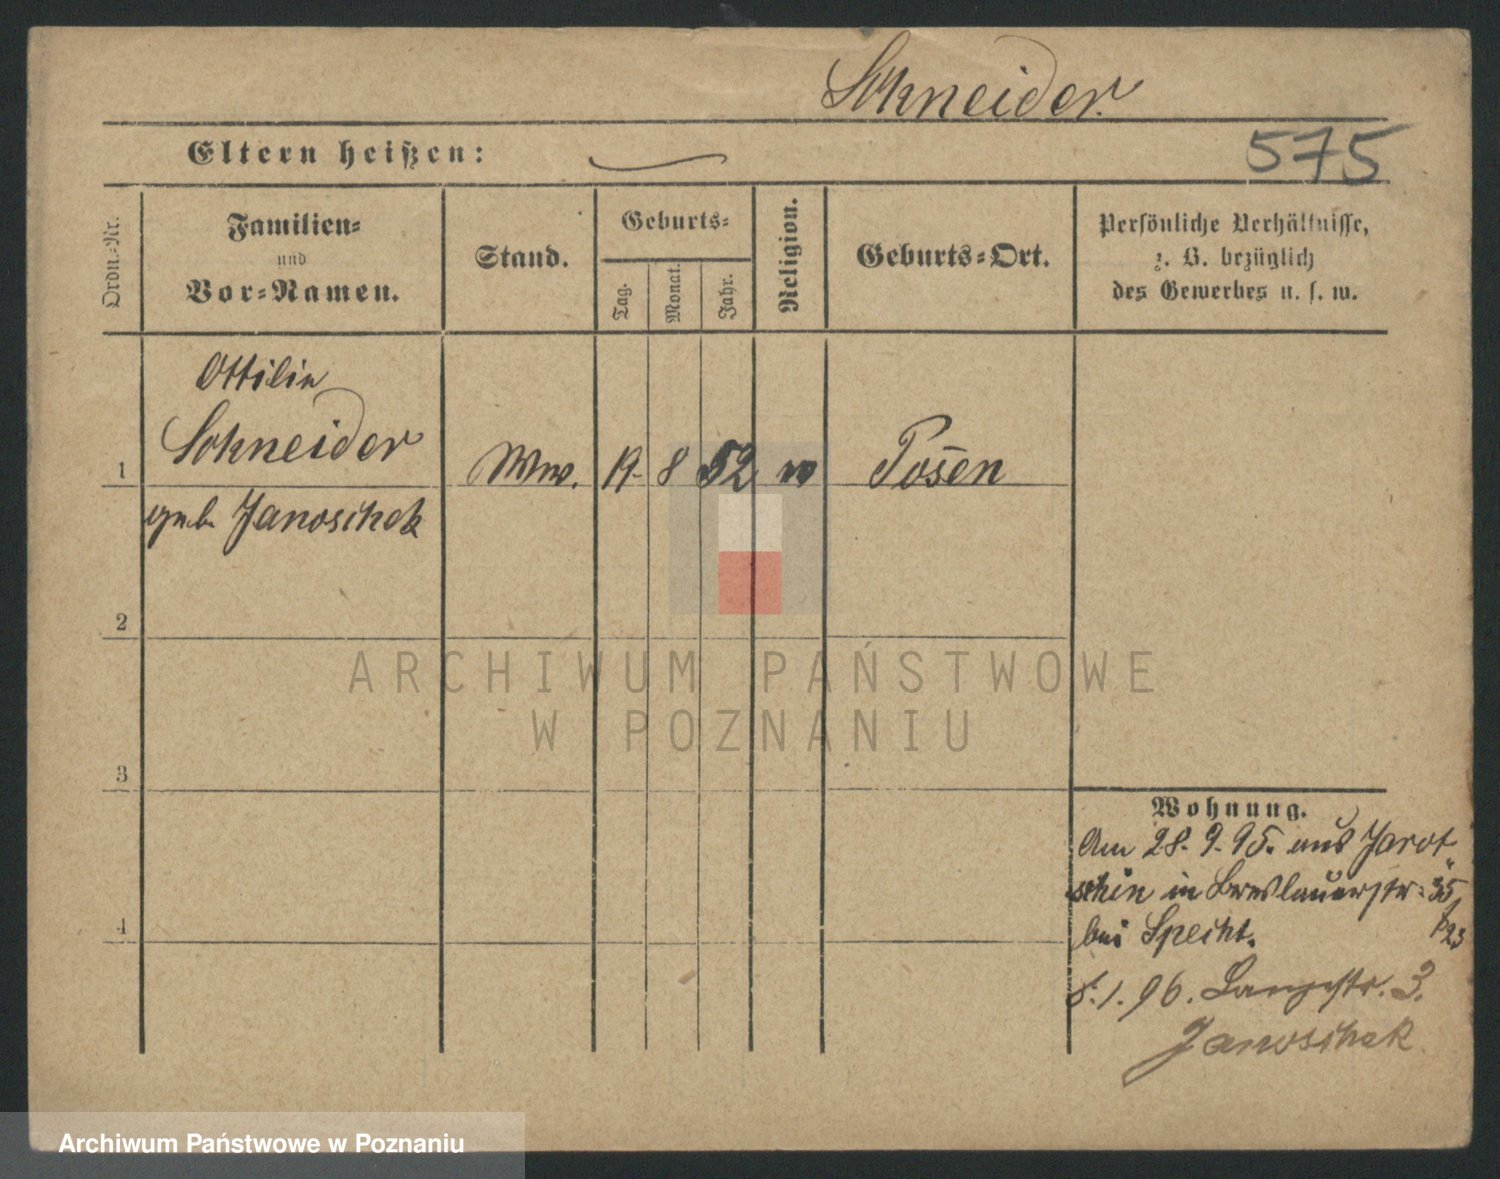 Schneider.
Eltern heißen:
575
Ordn.-Nr.
Familien-
und
Vor-Namen.
Stand.
Geburts-
Tag.
Monat.
Jahr.
Religion.
Geburts-Ort.
Persönliche Verhältnisse,
z. B. bezüglich
des Gewerbes u. s. w.
Ottilie
Schneider
1
Wwe. 19. 8 52 Posen
geb. Janoschek
2
ARCHIWUM PAŃSTWOWE
W POZNANIU
3
Wohnung.
Am 28. 9. 95. aus Jarot
schin in Breslauerstr. 35
4
bei Specht.
1. 96. Langestr. 3.
Janoschek
Archiwum Państwowe w Poznaniu